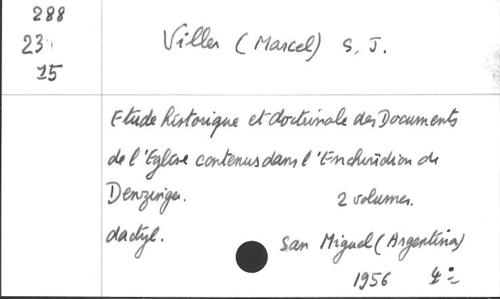 288
23
15
Viller (Marcel) S. J.
Etude historique et doctrinale des Documents
de l'Eglise contenus dans l'Enchiridion de
Denzinger. 2 volumes.
dactyl. San Miguel (Argentina)
1956 4°